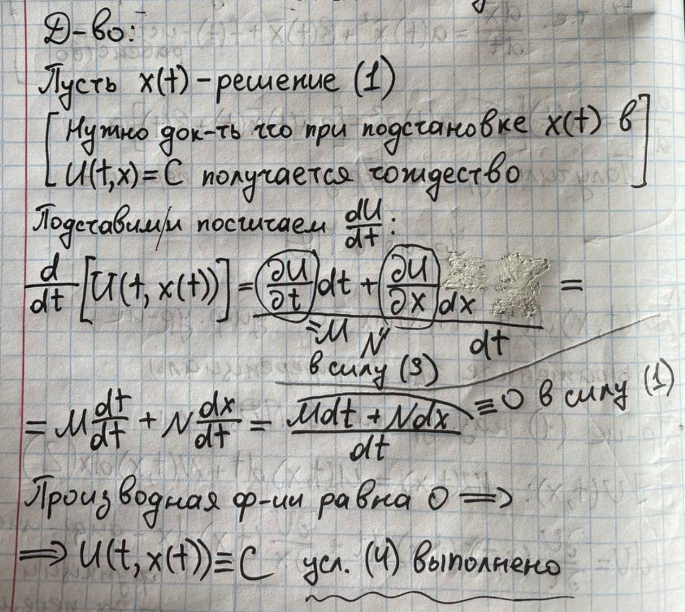 Д-во:
Пусть x(t) – решение (1)
[Нужно док-ть что при подстановке x(t) в
U(t,x)=C получается тождество]
Подставим и посчитаем dU/dt:
d/dt [U(t, x(t))] = (∂U/∂t dt + ∂U/∂x dx)/dt =
=M N
в силу (3)
= M dt/dt + N dx/dt = (Mdt + Ndx)/dt ≡ 0 в силу (1)
Производная ф-ии равна 0 ⟹
⟹ U(t, x(t)) ≡ C усл. (4) выполнено